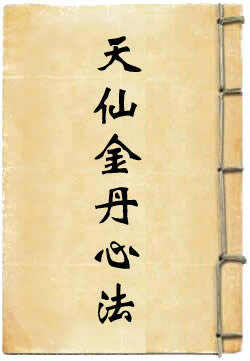 天仙金丹心法